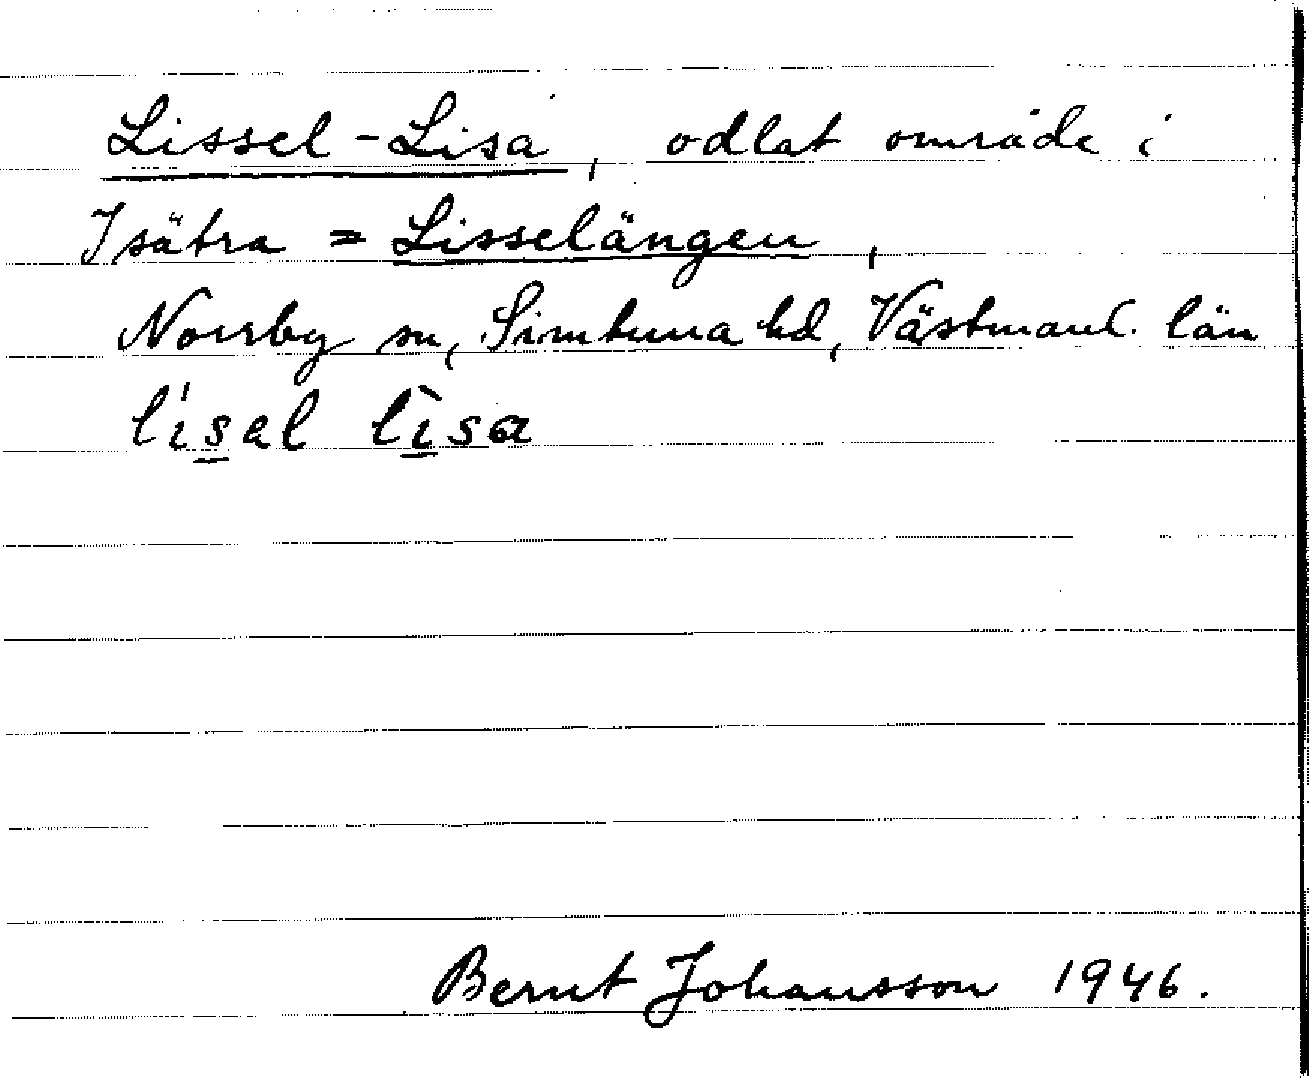 Lissel-Lisa, odlat område i
Isätra = Lisselängen,
Norrby sn, Simtuna hd, Västmanl. län
lísal lìsa
Bernt Johansson 1946.